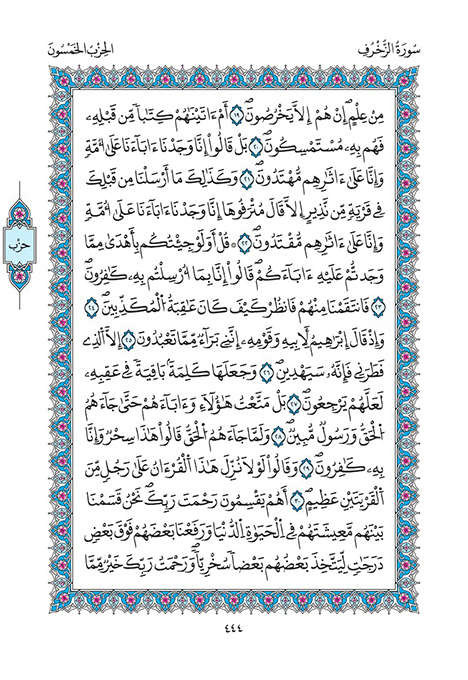 سُورَةُ الزُّخْرُفِ
الحِزْبُ الخَمْسُونَ
مِنْ عِلْمٍ إِنْ هُمْ إِلَّا يَخْرُصُونَ ١٩ أَمْ ءَاتَيْنَٰهُمْ كِتَٰبًا مِّن قَبْلِهِۦ
فَهُم بِهِۦ مُسْتَمْسِكُونَ ٢٠ بَلْ قَالُوٓاْ إِنَّا وَجَدْنَآ ءَابَآءَنَا عَلَىٰٓ أُمَّةٍ
وَإِنَّا عَلَىٰٓ ءَاثَٰرِهِم مُّهْتَدُونَ ٢١ وَكَذَٰلِكَ مَآ أَرْسَلْنَا مِن قَبْلِكَ
فِي قَرْيَةٍ مِّن نَّذِيرٍ إِلَّا قَالَ مُتْرَفُوهَآ إِنَّا وَجَدْنَآ ءَابَآءَنَا عَلَىٰٓ أُمَّةٍ
وَإِنَّا عَلَىٰٓ ءَاثَٰرِهِم مُّقْتَدُونَ ٢٢ قُلْ أَوَلَوْ جِئْتُكُم بِأَهْدَىٰ مِمَّا
وَجَدتُّمْ عَلَيْهِ ءَابَآءَكُمْ قَالُوٓاْ إِنَّا بِمَآ أُرْسِلْتُم بِهِۦ كَٰفِرُونَ
٢٣ فَانتَقَمْنَا مِنْهُمْ فَانظُرْ كَيْفَ كَانَ عَٰقِبَةُ الْمُكَذِّبِينَ ٢٤
وَإِذْ قَالَ إِبْرَٰهِيمُ لِأَبِيهِ وَقَوْمِهِۦٓ إِنَّنِي بَرَآءٌ مِّمَّا تَعْبُدُونَ ٢٥ إِلَّا الَّذِي
فَطَرَنِي فَإِنَّهُۥ سَيَهْدِينِ ٢٦ وَجَعَلَهَا كَلِمَةً بَاقِيَةً فِي عَقِبِهِۦ
لَعَلَّهُمْ يَرْجِعُونَ ٢٧ بَلْ مَتَّعْتُ هَٰٓؤُلَآءِ وَءَابَآءَهُمْ حَتَّىٰ جَآءَهُمُ
الْحَقُّ وَرَسُولٌ مُّبِينٌ ٢٨ وَلَمَّا جَآءَهُمُ الْحَقُّ قَالُواْ هَٰذَا سِحْرٌ وَإِنَّا
بِهِۦ كَٰفِرُونَ ٢٩ وَقَالُواْ لَوْلَا نُزِّلَ هَٰذَا الْقُرْءَانُ عَلَىٰ رَجُلٍ مِّنَ
الْقَرْيَتَيْنِ عَظِيمٍ ٣٠ أَهُمْ يَقْسِمُونَ رَحْمَتَ رَبِّكَ نَحْنُ قَسَمْنَا
بَيْنَهُم مَّعِيشَتَهُمْ فِي الْحَيَوٰةِ الدُّنْيَا وَرَفَعْنَا بَعْضَهُمْ فَوْقَ بَعْضٍ
دَرَجَٰتٍ لِّيَتَّخِذَ بَعْضُهُم بَعْضًا سُخْرِيًّا وَرَحْمَتُ رَبِّكَ خَيْرٌ مِّمَّا
حزب
٤٤٤